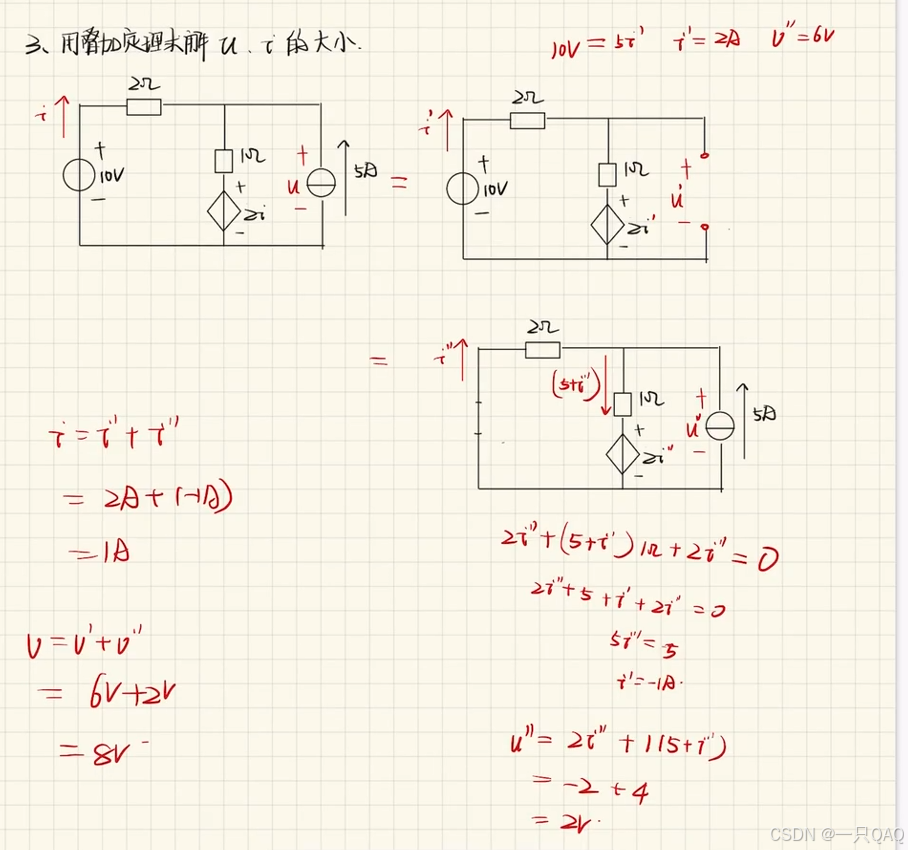 3、用叠加定理求解 u、i 的大小.
10V = 5i' i' = 2A U'' = 6V
2Ω
i
+
10V
-
1Ω
+
2i
-
+
u
-
5A
=
2Ω
i'
+
10V
-
1Ω
+
2i'
-
+
u'
-
=
2Ω
i''
(5+i'')
1Ω
+
2i''
-
+
u''
-
5A
i = i' + i''
= 2A + (-1A)
= 1A
U = U' + U''
= 6V + 2V
= 8V
2i'' + (5+i')1Ω + 2i'' = 0
2i'' + 5 + i' + 2i'' = 0
5i'' = 5
i' = -1A.
u'' = 2i'' + 1(5+i')
= -2 + 4
= 2V.
CSDN @一只QAQ